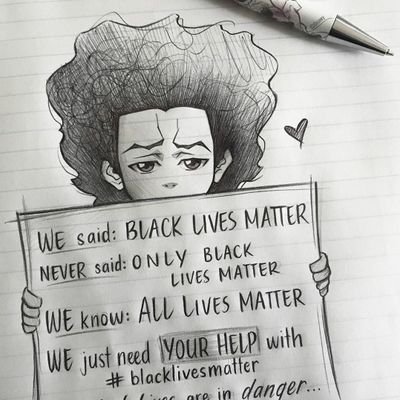 WE said: BLACK LIVES MATTER
NEVER said: ONLY BLACK
LIVES MATTER
WE know: ALL LIVES MATTER
WE just need YOUR HELP with
#blacklivesmatter
lives are in danger...